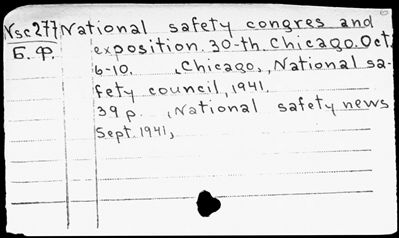 Vsc277 National safety congres and
Б. Ф. exposition. 30-th. Chicago. Oct.
6-10. , Chicago, , National sa-
fety council, 1941.
39 p. , National safety news
Sept. 1941,